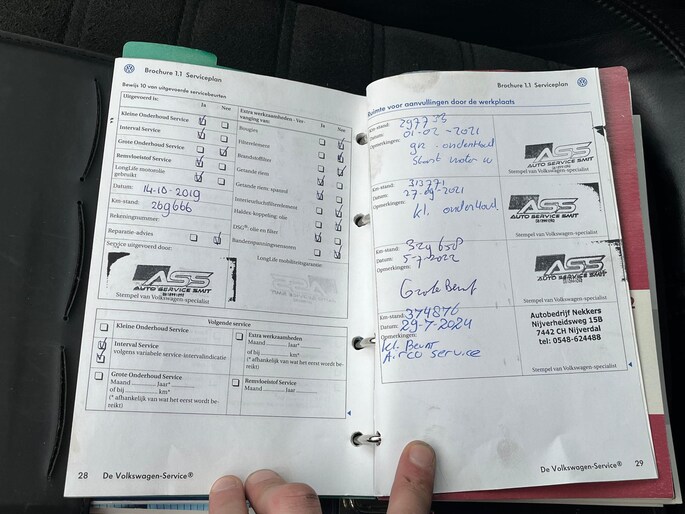 Brochure 1.1 Serviceplan
Bewijs 10 van uitgevoerde servicebeurten
Uitgevoerd is:
Ja
Nee
Kleine Onderhoud Service
Interval Service
Grote Onderhoud Service
Remvloeistof Service
LongLife motorolie
gebruikt
Datum:
14-10-2019
Km-stand:
269666
Rekeningnummer:
Reparatie-advies
Service uitgevoerd door:
ASS
AUTO SERVICE SMIT
Stempel van Volkswagen-specialist
Extra werkzaamheden - Ver-
vanging van:
Ja
Nee
Bougies
Filterelement
Brandstoffilter
Getande riem
Getande riem-spanrol
Interieurluchtfilterelement
Haldex-koppeling: olie
DSG®: olie en filter
Bandenspanningssensoren
LongLife mobiliteitsgarantie
Volgende service
Kleine Onderhoud Service
Interval Service
volgens variabele service-intervalindicatie
Grote Onderhoud Service
Maand ........ jaar*
of bij ........ km*
(* afhankelijk van wat het eerst wordt be-
reikt)
Extra werkzaamheden
Maand ........ jaar*
of bij ........ km*
(* afhankelijk van wat het eerst wordt be-
reikt)
Remvloeistof Service
Maand ........ jaar
28
De Volkswagen-Service®
Brochure 1.1 Serviceplan
Ruimte voor aanvullingen door de werkplaats
Km-stand:
Datum: 01-02-2021
Opmerkingen:
gr. onderhoud
Start motor
ASS
AUTO SERVICE SMIT
Stempel van Volkswagen-specialist
Km-stand: 313771
Datum: 27-09-2021
Opmerkingen:
kl. onderhoud
ASS
AUTO SERVICE SMIT
Stempel van Volkswagen-specialist
Km-stand: 329658
Datum: 5-7-2022
Opmerkingen:
Grote Beurt
ASS
AUTO SERVICE SMIT
Stempel van Volkswagen-specialist
Km-stand: 374876
Datum: 29-7-2024
Opmerkingen:
kl. Beurt
Airco Service
Autobedrijf Nekkers
Nijverheidsweg 15B
7442 CH Nijverdal
tel: 0548-624488
Stempel van Volkswagen-specialist
De Volkswagen-Service®
29